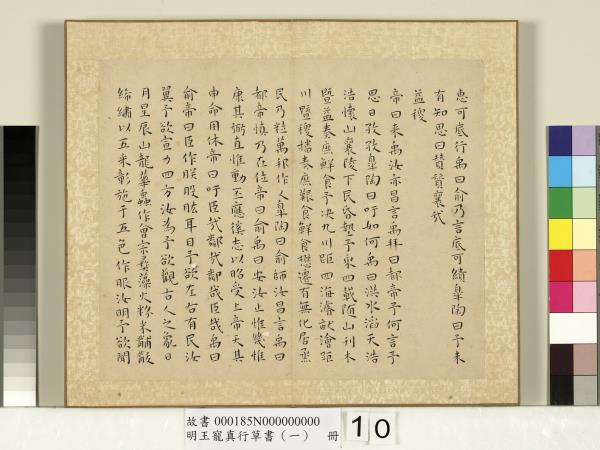 惠可底行禹曰俞乃言底可績皐陶曰予未
有知思曰贊贊襄哉
益稷
帝曰来禹汝亦昌言禹拜曰都帝予何言予
思日孜孜皐陶曰吁如何禹曰洪水滔天浩
浩懷山襄陵下民昏墊予乘四載随山刊木
暨益奏庶鮮食予决九川距四海濬畎澮距
川暨稷播奏庶艱食鮮食懋遷有無化居烝
民乃粒萬邦作乂皐陶曰俞師汝昌言禹曰
都帝慎乃在位帝曰俞禹曰安汝止惟幾惟
康其弼直惟動丕應徯志以昭受上帝天其
申命用休帝曰吁臣哉鄰哉鄰哉臣哉禹曰
俞帝曰臣作朕股肱耳目予欲左右有民汝
翼予欲宣力四方汝為予欲觀古人之象日
月星辰山龍華蟲作會宗彝藻火粉米黼黻
絺繡以五采彰施于五色作服汝明予欲聞
故書 000185N000000000
明王寵真行草書（一） 冊
10